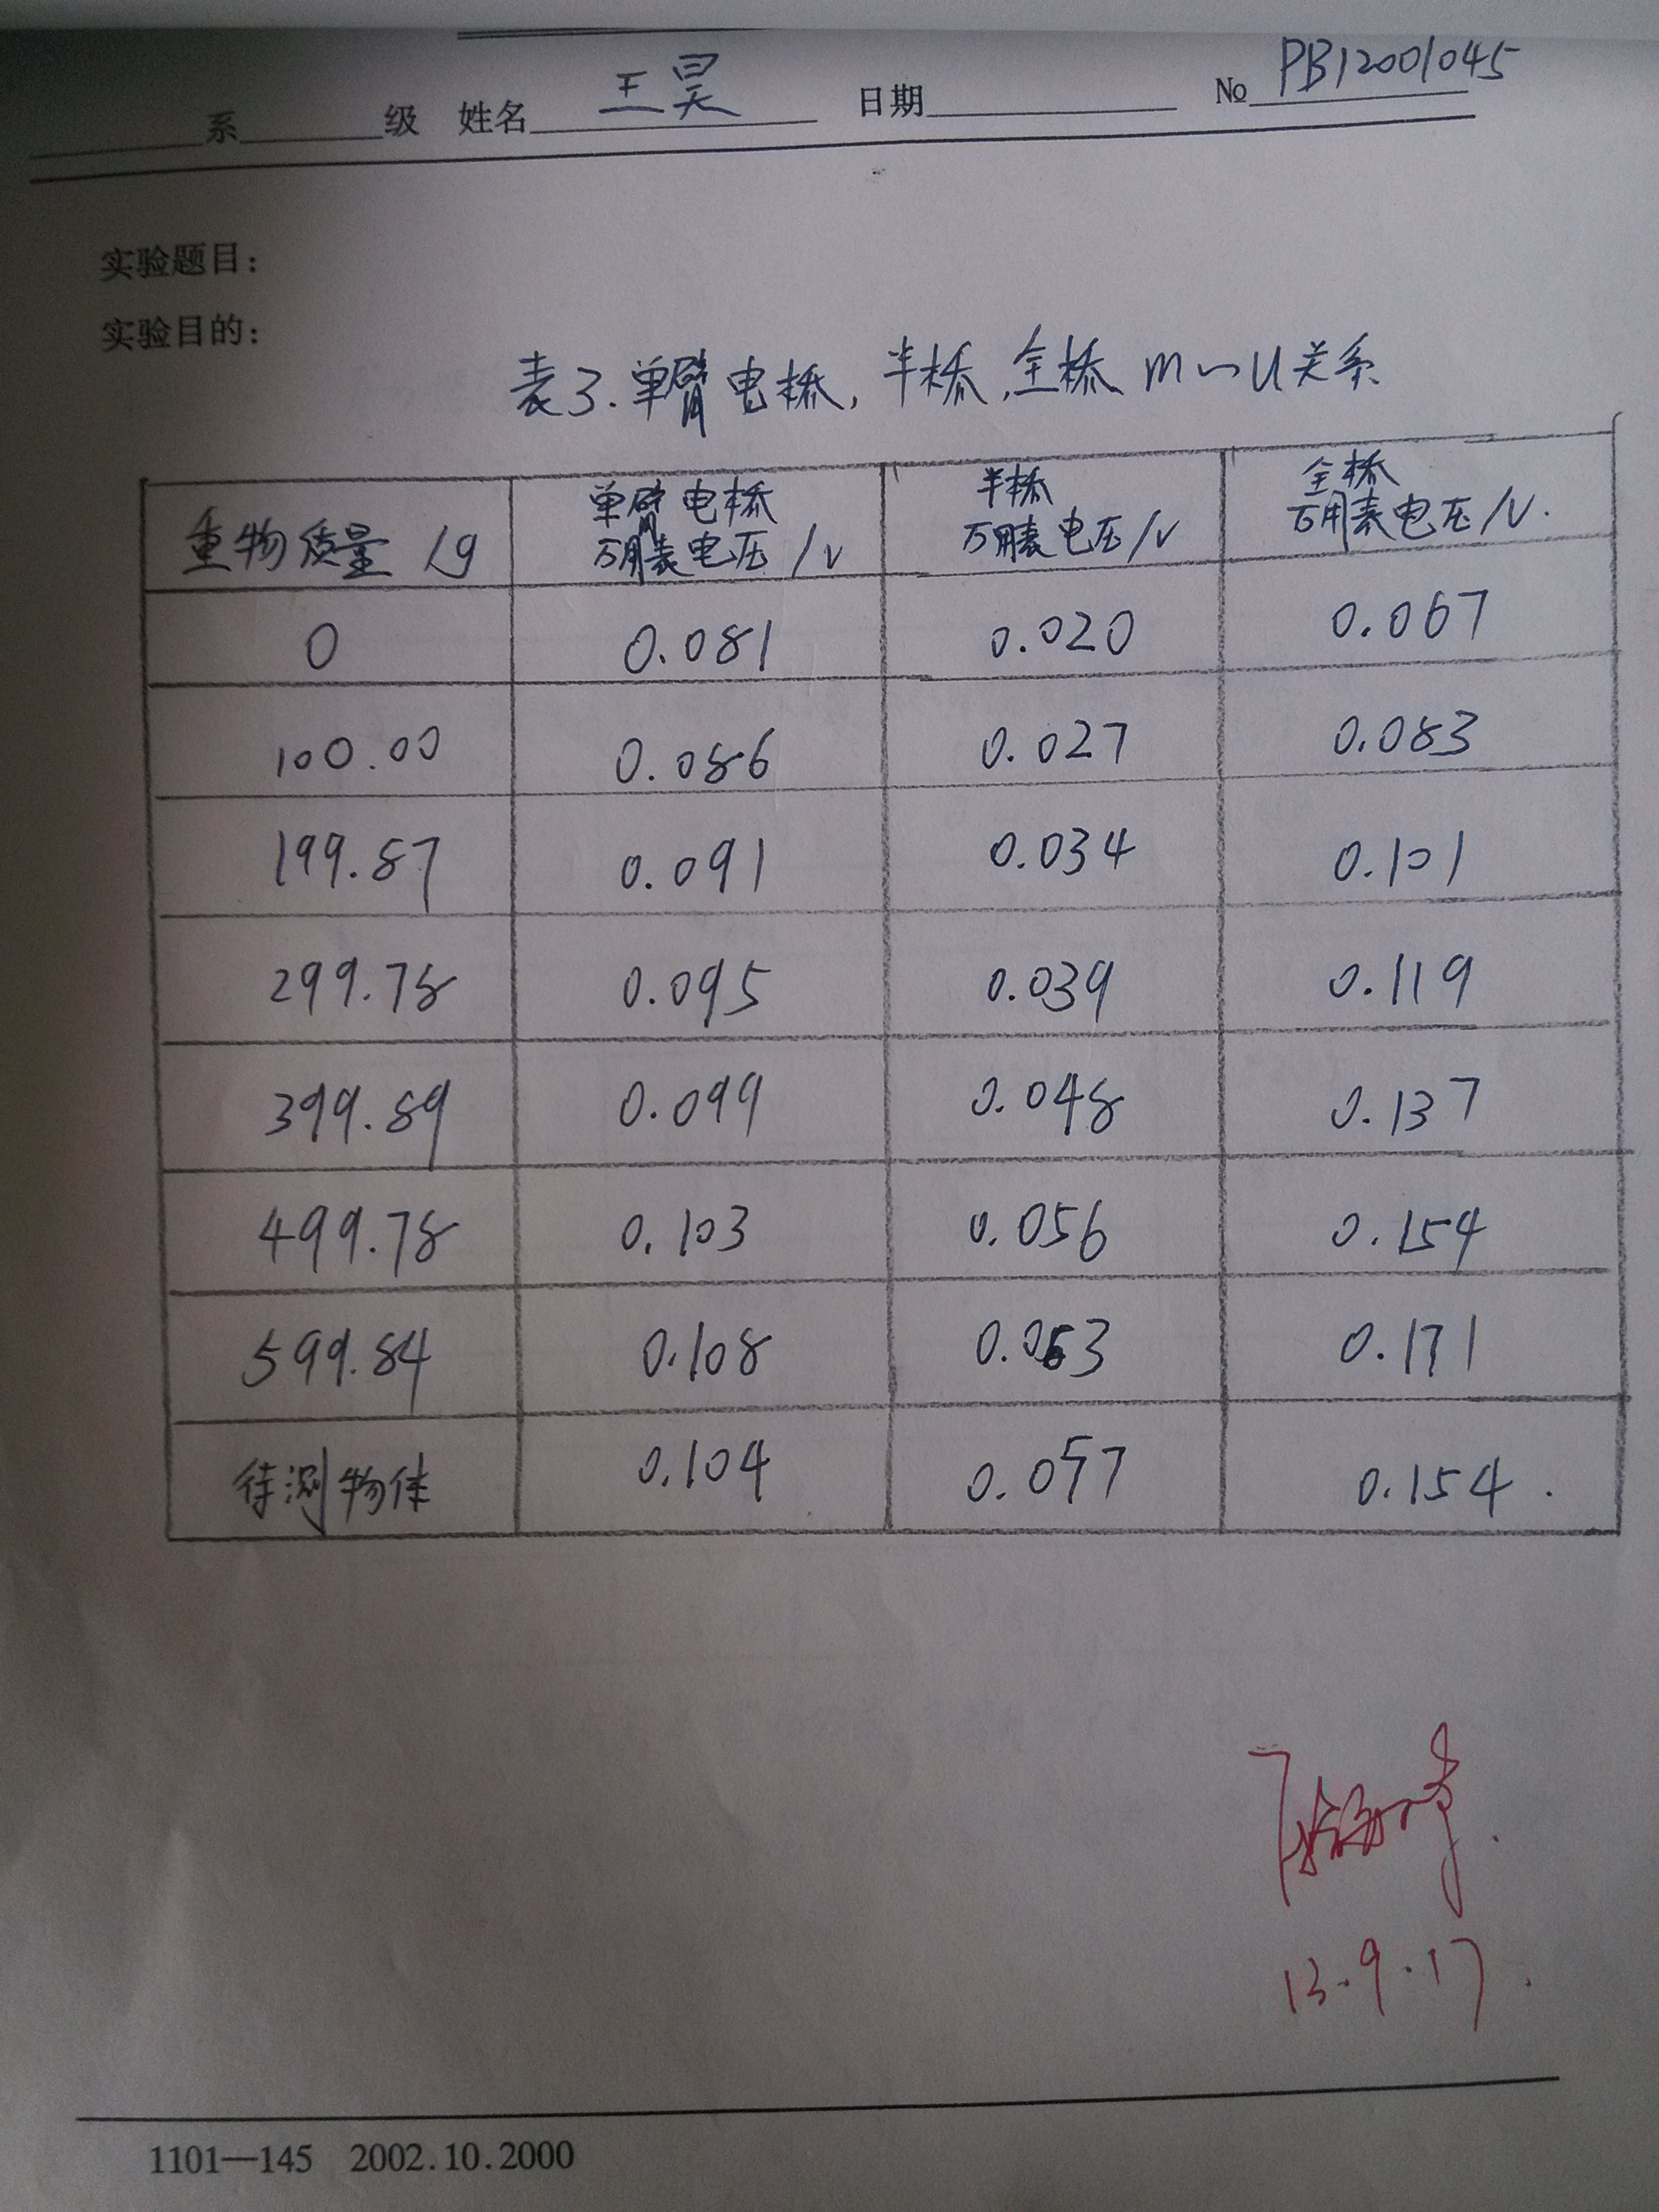 系 级 姓名 王昊 日期 № PB12001045
实验题目:
实验目的:
表3.单臂电桥,半桥,全桥 m~U关系
重物质量/g 单臂电桥 万用表电压/V 半桥 万用表电压/V 全桥 万用表电压/V.
0 0.081 0.020 0.067
100.00 0.086 0.027 0.083
199.87 0.091 0.034 0.101
299.78 0.095 0.039 0.119
399.89 0.099 0.048 0.137
499.78 0.103 0.056 0.154
599.84 0.108 0.063 0.171
待测物体 0.104 0.057 0.154.
13.9.17.
1101—145 2002.10.2000